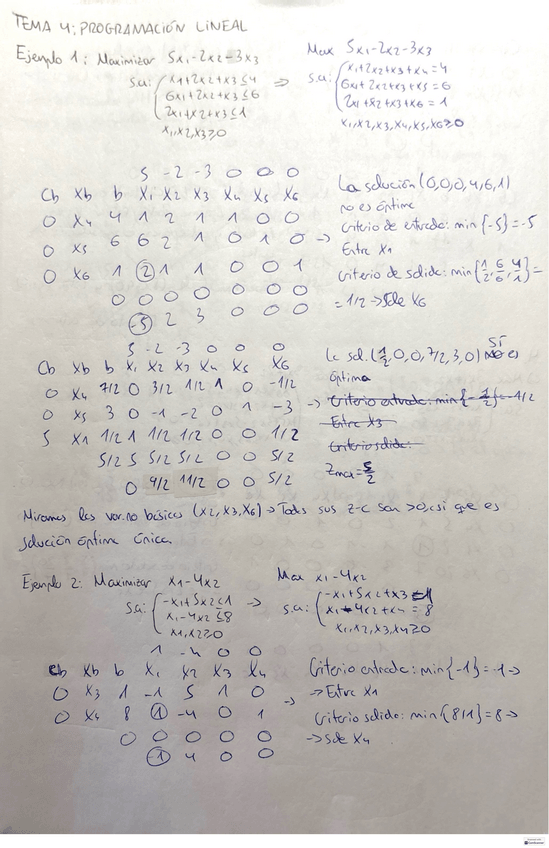 TEMA 4: PROGRAMACIÓN LINEAL
Ejemplo 1: Maximizar 5x1-2x2-3x3
s.a: x1+2x2+x3≤4
6x1+2x2+x3≤6
2x1+x2+x3≤1
x1,x2,x3≥0
⇒
Max 5x1-2x2-3x3
s.a: x1+2x2+x3+x4=4
6x1+2x2+x3+x5=6
2x1+x2+x3+x6=1
x1,x2,x3,x4,x5,x6≥0
5 -2 -3 0 0 0
Cb Xb b x1 x2 x3 x4 x5 x6
0 x4 4 1 2 1 1 0 0
0 x5 6 6 2 1 0 1 0 →
0 x6 1 2 1 1 0 0 1
0 0 0 0 0 0 0
-5 2 3 0 0 0
La solución (0,0,0,4,6,1)
no es óptima
Criterio de entrada: min{-5}=-5
Entra x1
Criterio de salida: min{1/2, 6/6, 4/1}=
=1/2→Sale x6
5 -2 -3 0 0 0
Cb Xb b x1 x2 x3 x4 x5 x6
0 x4 7/2 0 3/2 1/2 1 0 -1/2
0 x5 3 0 -1 -2 0 1 -3 →
5 x1 1/2 1 1/2 1/2 0 0 1/2
5/2 5 5/2 5/2 0 0 5/2
0 9/2 11/2 0 0 5/2
La sol. (1/2,0,0,7/2,3,0) no SÍ es
óptima
Criterio entrada: min{-1/2}=-1/2
Entra x3
Criterio salida:
Zmax=5/2
Miramos las var. no básicas (x2,x3,x6)→Todas sus z-c son >0, así que es
solución óptima única.
Ejemplo 2: Maximizar x1-4x2
s.a: -x1+5x2≤1
x1-4x2≤8
x1,x2≥0
→
Max x1-4x2
s.a: -x1+5x2+x3=1
x1-4x2+x4=8
x1,x2,x3,x4≥0
1 -4 0 0
Cb Xb b x1 x2 x3 x4
0 x3 1 -1 5 1 0
0 x4 8 1 -4 0 1 →
0 0 0 0 0
-1 4 0 0
Criterio entrada: min{-1}=-1→
→Entra x1
Criterio salida: min{8/1}=8→
→Sale x4